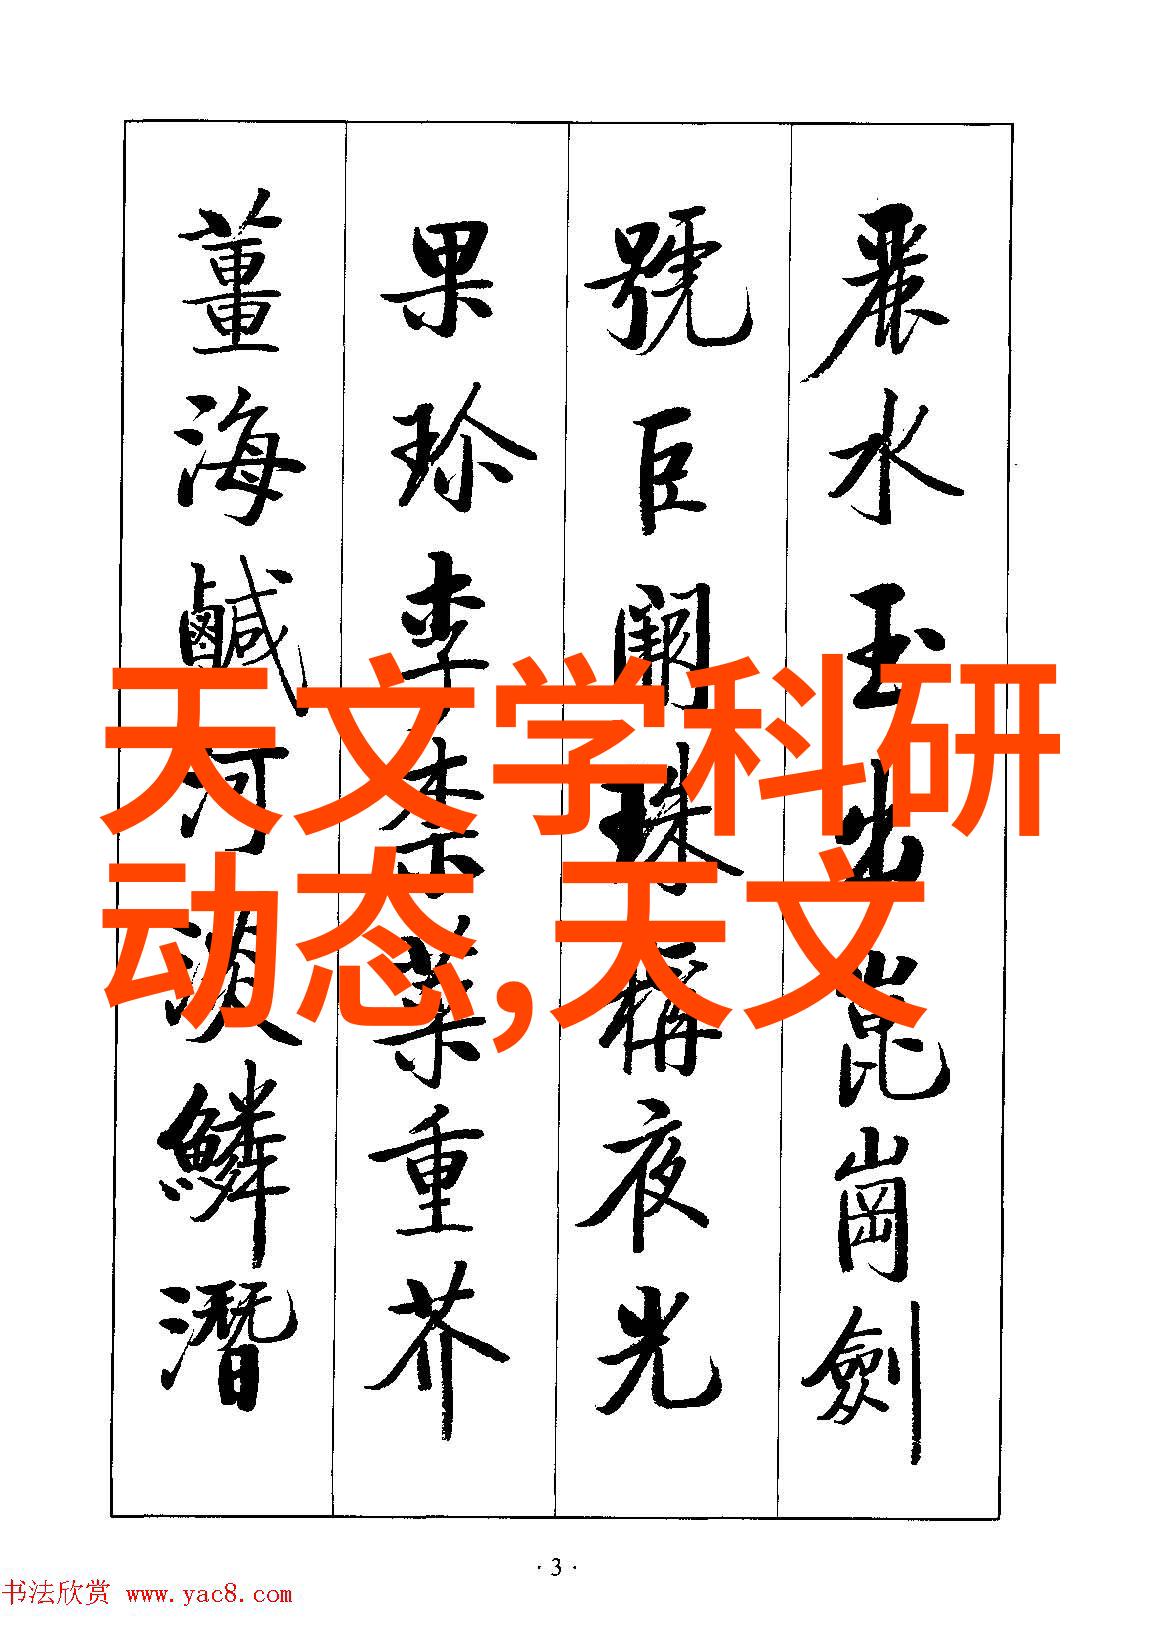 麗水玉出崑崗劍
號巨闕珠稱夜光
果珍李柰菜重芥
薑海鹹河淡鱗潛
天文学科研
动态,天文
·3·
书法欣赏 www.yac8.com